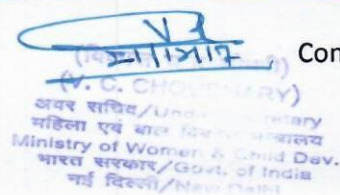 Con
(V. C. CHOUDHARY)
अवर सचिव/Under Secretary
महिला एवं बाल विकास मंत्रालय
Ministry of Women & Child Dev.
भारत सरकार/Govt. of India
नई दिल्ली/New Delhi